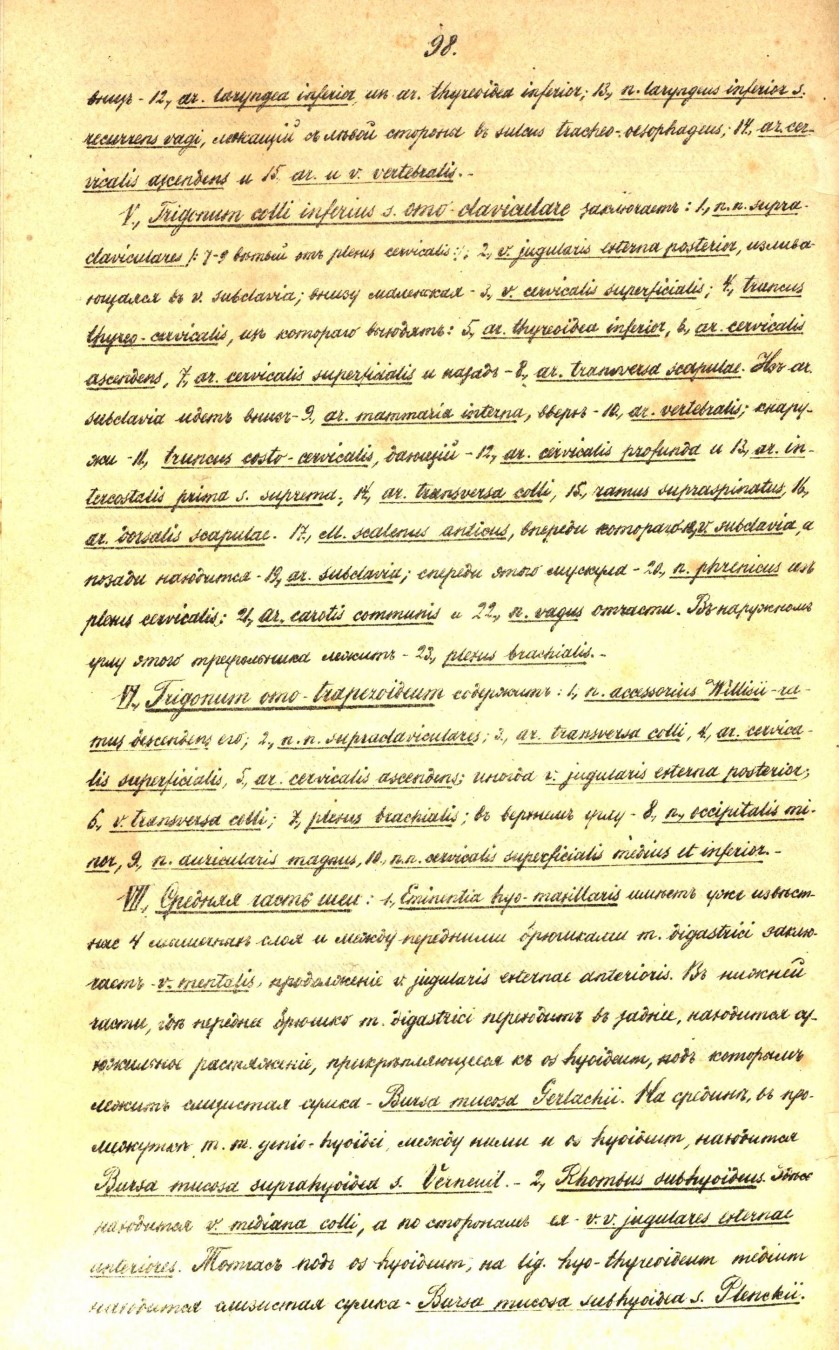 98.
внизъ - 12, ar. laryngea inferior изъ ar. thyreoidea inferior; 13, n. laryngeus inferior s.
recurrens vagi, лежащій съ лѣвой стороны въ sulcus tracheo-oesophageus; 14, ar. cer-
vicalis ascendens и 15 ar. и v. vertebralis.-
V, Trigonum colli inferius s. omo-claviculare заключаетъ: 1, n.n. supra-
claviculares /: 7-9 вѣтвей отъ plexus cervicalis :/; 2, v. jugularis externa posterior, излива-
ющаяся въ v. subclavia; внизу маленькая - 3, v. cervicalis superficialis; 4, truncus
thyreo-cervicalis, изъ котораго выходятъ: 5, ar. thyreoidea inferior, 6, ar. cervicalis
ascendens, 7, ar. cervicalis superficialis и назадъ - 8, ar. transversa scapulae. Изъ ar.
subclavia идетъ внизъ - 9, ar. mammaria interna, вверхъ - 10, ar. vertebralis; кнару-
жи - 11, truncus costo-cervicalis, дающій - 12, ar. cervicalis profunda и 13, ar. in-
tercostalis prima s. suprema; 14, ar. transversa colli, 15, ramus supraspinatus, 16,
ar. dorsalis scapulae. 17, M. scalenus anticus, впереди котораго 18, v. subclavia, а
позади находится - 19, ar. subclavia; спереди этого мускула - 20, n. phrenicus изъ
plexus cervicalis; 21, ar. carotis communis и 22, n. vagus отчасти. Въ наружномъ
углу этого треугольника лежитъ - 23, plexus brachialis.-
VI, Trigonum omo-trapezoideum содержитъ: 1, n. accessorius Willisii - ra-
mus descendens его; 2, n.n. supraclaviculares; 3, ar. transversa colli, 4, ar. cervica-
lis superficialis, 5, ar. cervicalis ascendens; иногда v. jugularis externa posterior;
6, v. transversa colli; 7, plexus brachialis; въ верхнемъ углу - 8, n. occipitalis mi-
nor, 9, n. auricularis magnus, 10, n.n. cervicalis superficialis medius et inferior.-
VII, Средняя часть шеи: 1, Eminentia hyo-maxillaris имѣетъ уже извѣст-
ные 4 мышечныхъ слоя и между передними брюшками m. digastrici заклю-
чаетъ - v. mentalis, продолженіе v. jugularis externae anterioris. Въ нижней
части, гдѣ переднее брюшко m. digastrici переходитъ въ заднее, находится су-
хожильное растяженіе, прикрѣпляющееся къ os hyoideum, подъ которымъ
лежитъ слизистая сумка - Bursa mucosa Gerlachii. На срединѣ, въ про-
межуткѣ m.m. genio-hyoidei, между ними и os hyoideum, находится
Bursa mucosa suprahyoidea s. Verneuil.- 2, Rhombus subhyoideus. Здѣсь
находится v. mediana colli, а по сторонамъ ея - v.v. jugulares externae
anteriores. Тотчасъ подъ os hyoideum, на lig. hyo-thyreoideum medium
находится слизистая сумка - Bursa mucosa subhyoidea s. Plenckii.